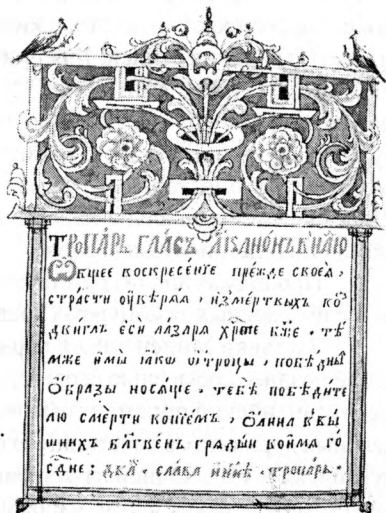 ТРОПАРЬ ГЛАСЪ
Ѡбщее воскресенїе прежде своеѧ,
страсти ᲂувѣряѧ, измертвыхъ во҇з
двиглъ еси лазаря хр҇те бж҃е. тѣ
мже имы ꙗко ѻтроцы, побѣдныѧ
ѻбразы носѧще. тебѣ побѣдите
лю смерти вопїемъ, ѻ҆санна ввы
шнихъ бл҃гвенъ грѧдыи во имѧ го
сдне; два. слава инн҃ѣ. тропарь.